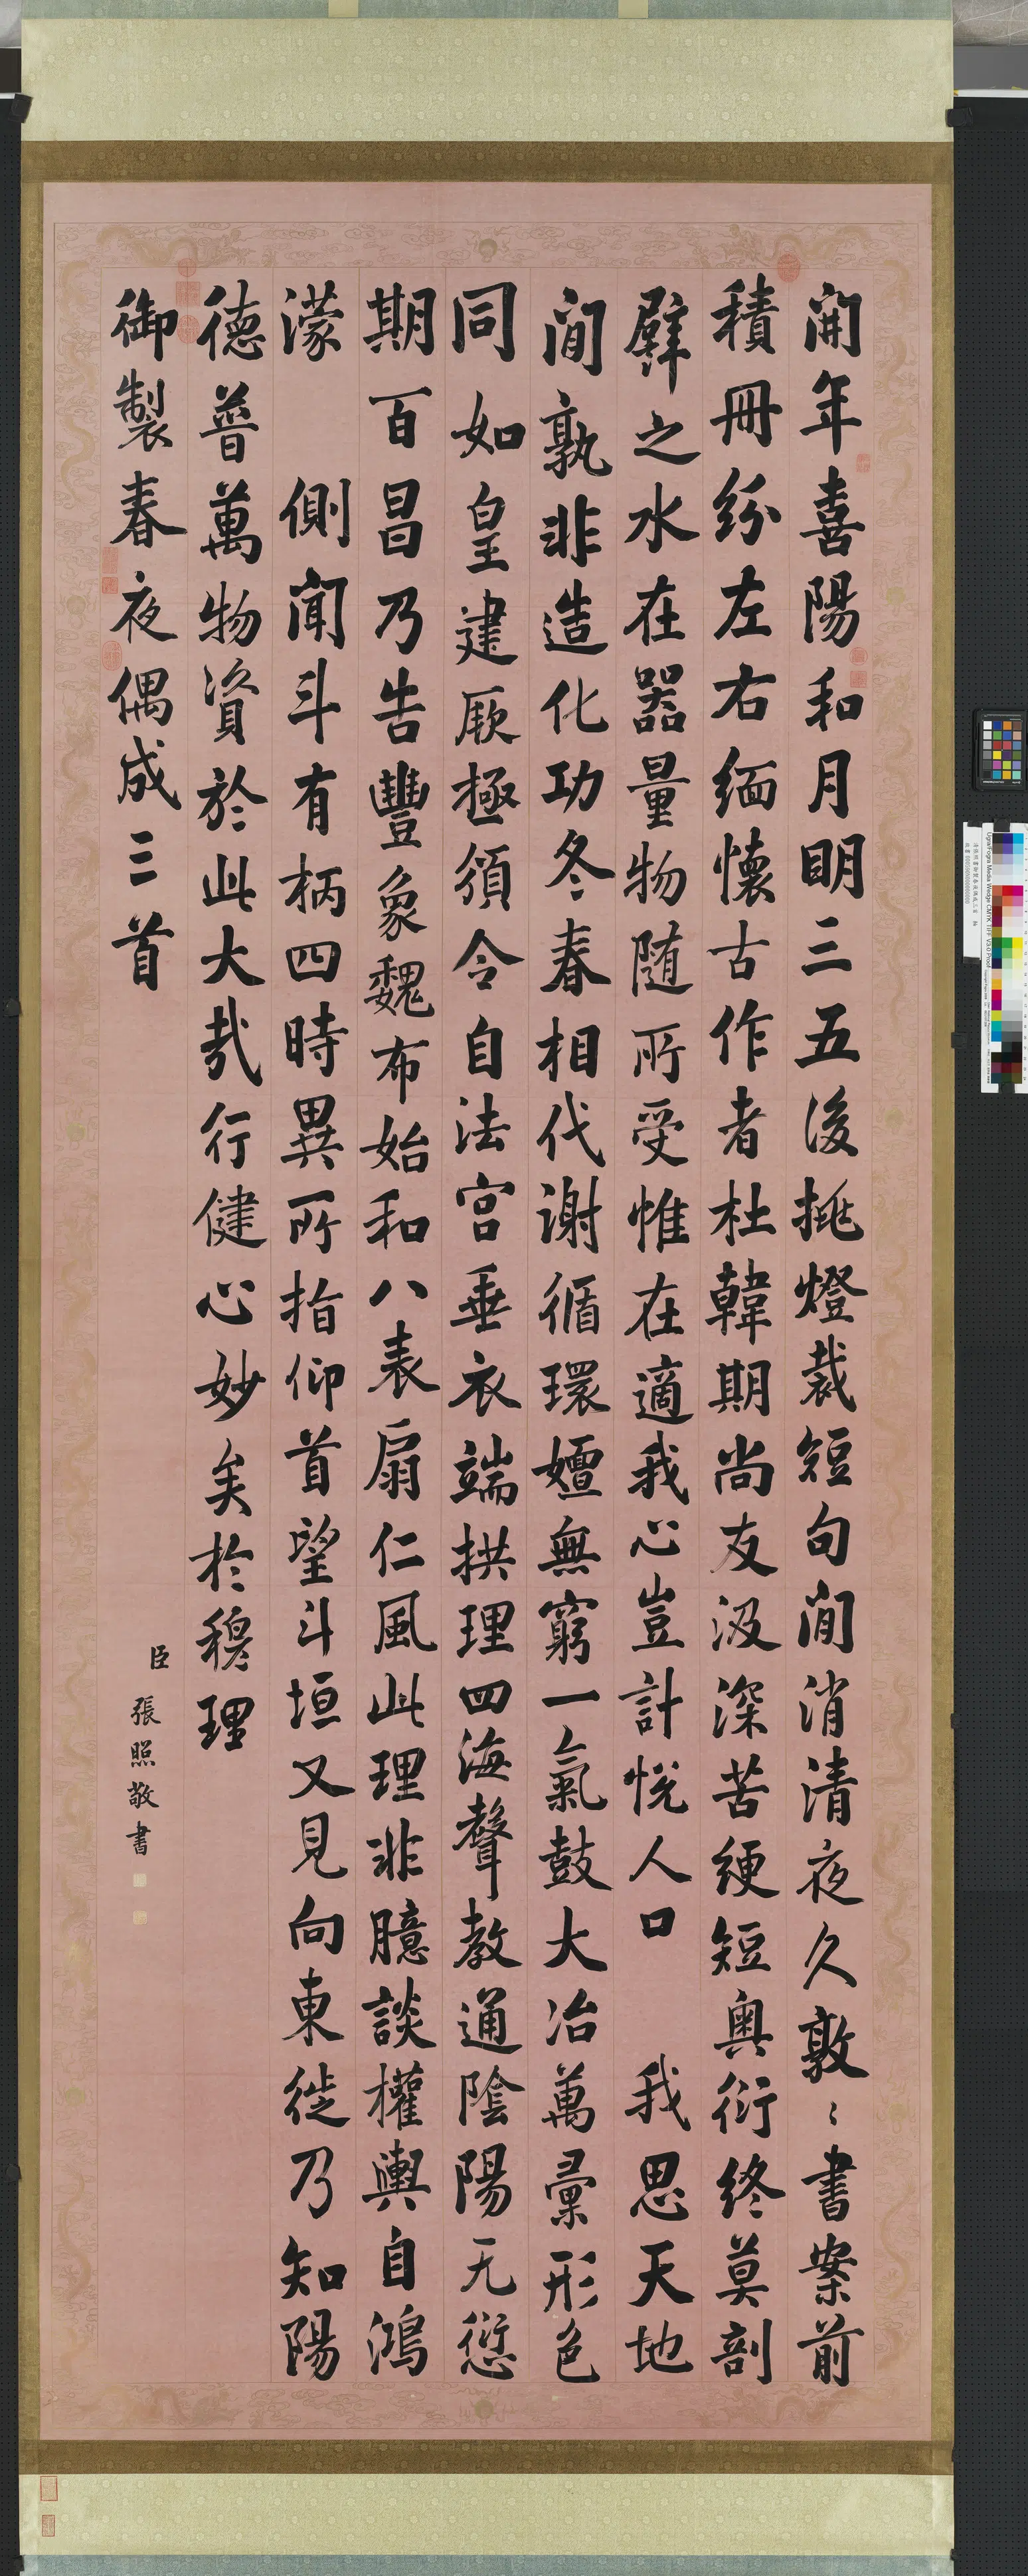 開年喜陽和月明三五後挑燈裁短句閒消清夜久敦〻書案前
積冊紛左右緬懷古作者杜韓期尚友汲深苦綆短奧衍終莫剖
譬之水在器量物隨所受惟在適我心豈計悅人口 我思天地
間孰非造化功冬春相代謝循環嬗無窮一氣鼓大冶萬彙形色
同如皇建厥極須令自法宮垂衣端拱理四海聲教通陰陽无愆
期百昌乃告豐象魏布始和八表扇仁風此理非臆談權輿自鴻
濛 側聞斗有柄四時異所指仰首望斗垣又見向東徙乃知陽
德普萬物資於此大哉行健心妙矣於穆理
御製春夜偶成三首
臣張照敬書